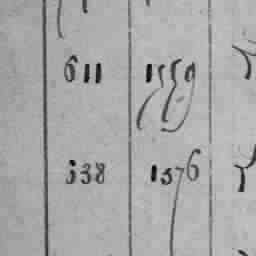 611 1559
538 1576